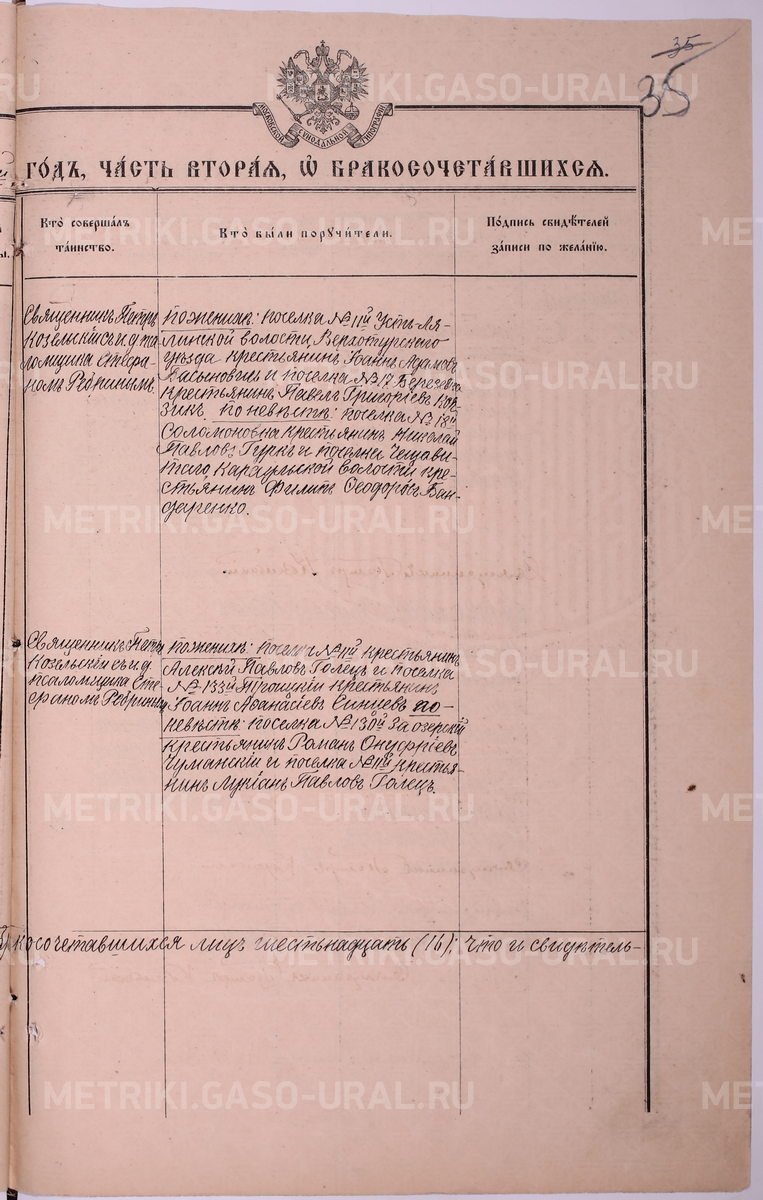 35
35
МОСКОВСКОЙ СУНОДАЛЬНОЙ ТИПОГРАФІИ
ГО́ДЪ, ЧА́СТЬ ВТОРА́Я, Ѡ҆ БРАКОСОЧЕТА́ВШИХСЯ.
Кто̀ соверша́лъ
та́инство.
Кто̀ бы́ли порꙋчи́тели.
По́дпись свидѣ́телей
за́писи по жела́нїю.
Священникъ Петръ
Козельскій съ и. д. пса-
ломщика Стефа-
номъ Ребринымъ.
по женихѣ: поселка № 11й Усть-Ля-
линской волости Верхотурскаго
уѣзда крестьянинъ Іоаннъ Адамовъ
Васыновичъ и поселка № 12
крестьянинъ Павелъ Григоріевъ
по невѣстѣ: поселка № 18й
Соломоновка крестьянинъ Николай
Павловъ Гуркъ и поселка
Караульской волости кре-
стьянинъ Филипъ Ѳеодоровъ Бан-
даренко.
Священникъ Петръ
Козельскій съ и. д.
псаломщика Сте-
фаномъ Ребринымъ
по женихѣ: поселка № 11й крестьянинъ
Алексѣй Павловъ Голецъ и поселка
№ 133й Троицкій крестьянинъ
Іоаннъ Аѳанасіевъ по-
невѣстѣ: поселка № 130й За озерскій
крестьянинъ Романъ Онуфріевъ
Чуманскій и поселка № 11й крестья-
нинъ Лукіанъ Павловъ Голецъ.
косочетавшихся лицъ шестьнадцать (16); что и свидѣтель-
METRIKI.GASO-URAL.RU